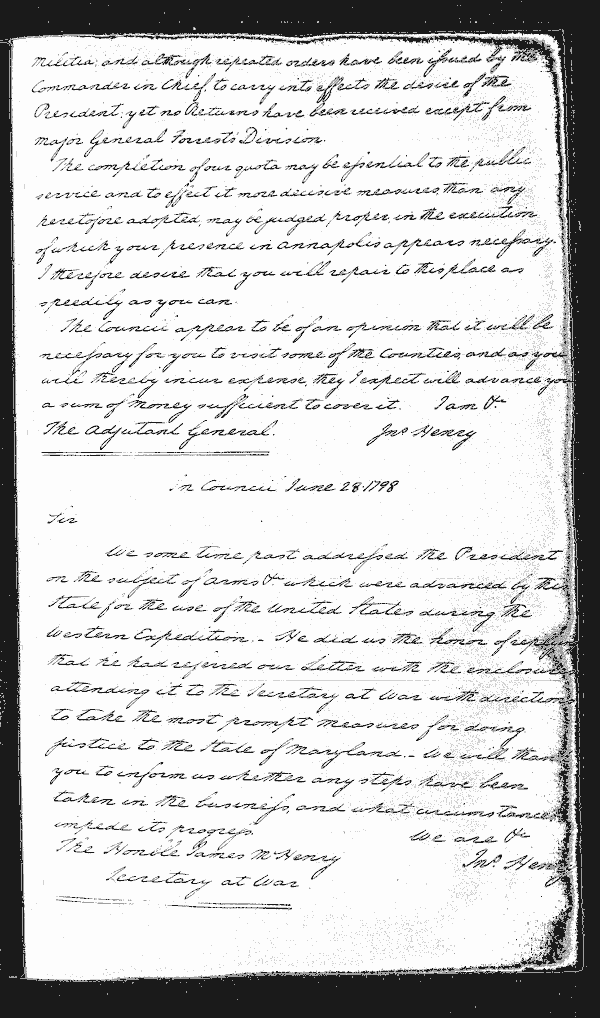 Militia; and although repeated orders have been issued by the
Commander in Chief, to carry into effects the desire of the
President; yet no Returns have been received except from
Major General Forrest's Division.
The completion of our quota may be essential to the public
service and to effect it more decisive measures, than any
heretofore adopted, may be judged proper, in the execution
of which your presence in Annapolis appears necessary.
I therefore desire that you will repair to this place as
speedily as you can.
The Council appear to be of an opinion that it will be
necessary for you to visit some of the Counties, and as you
will thereby incur expense, they I expect will advance you
a sum of Money sufficient to cover it. I am &c
The Adjutant General. Jno Henry
In Council June 28. 1798
Sir
We some time past addressed the President
on the subject of Arms &c which were advanced by this
State for the use of the United States during the
Western Expedition. - He did us the honor of
that he had referred our Letter with the enclosures
attending it to the Secretary at War with directions
to take the most prompt measures for doing
justice to the State of Maryland. - We will thank
you to inform us whether any steps have been
taken in the business, and what circumstances
impede its progress. We are &c
The Honble James McHenry Jno. Henry
Secretary at War.